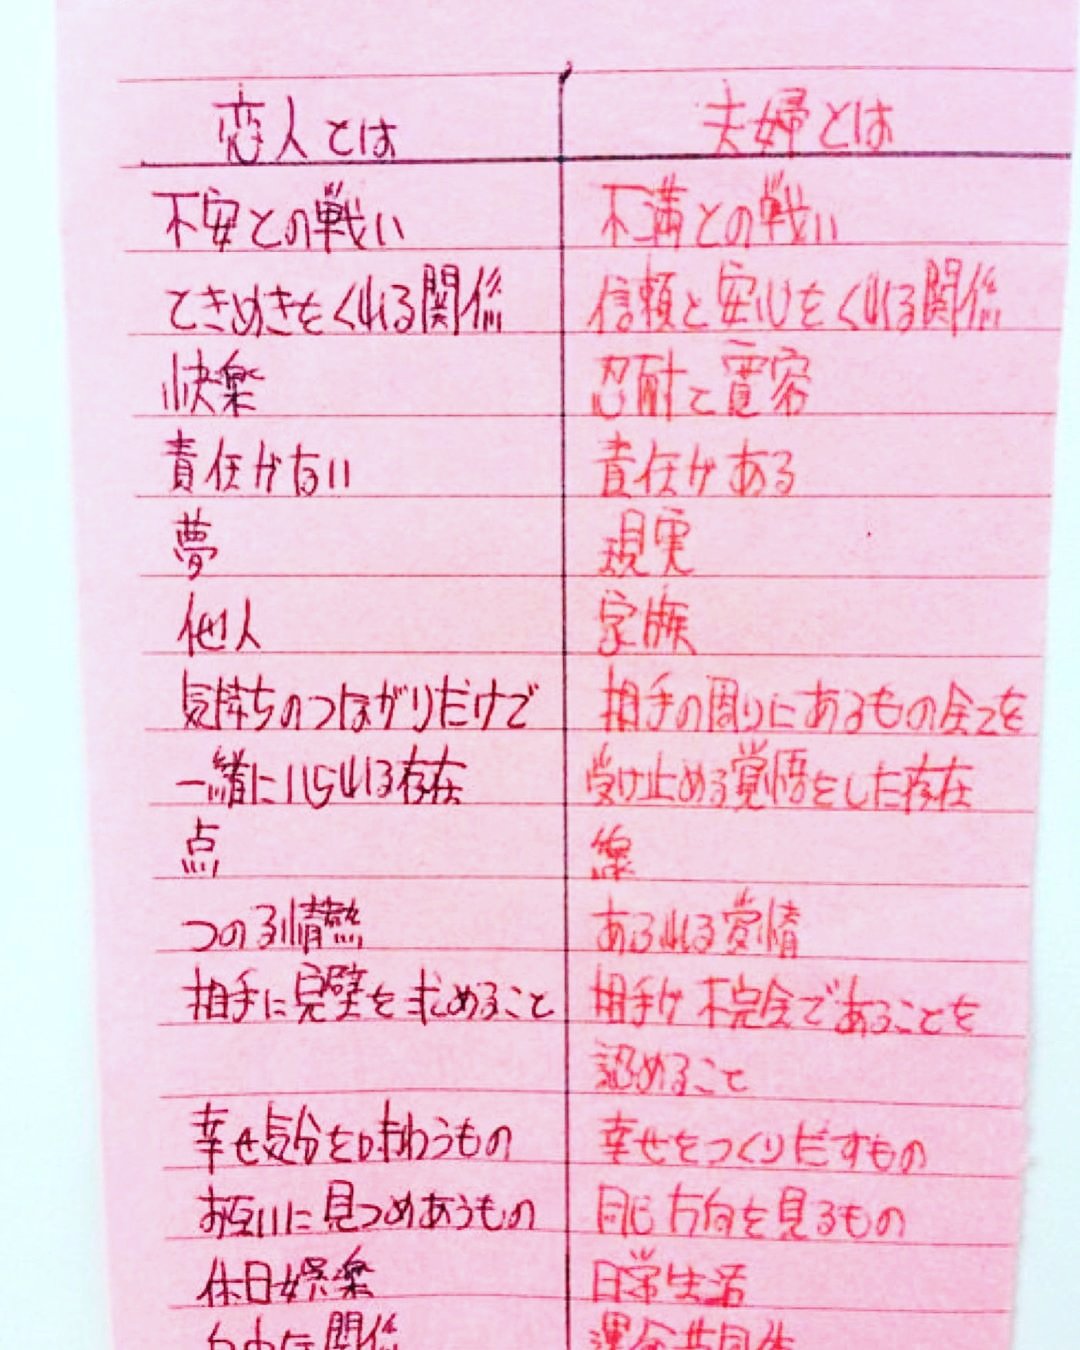 恋人とは
夫婦とは
不安との戦い
不満との戦い
ときめきをくれる関係
信頼と安心をくれる関係
快楽
忍耐と寛容
責任がない
責任がある
夢
現実
他人
家族
気持ちのつながりだけで
一緒にいられる存在
相手の周りにあるもの全てを
受け止める覚悟をした存在
点
線
つのる情熱
あふれる愛情
相手に完璧を求めること
相手が不完全であることを
認めること
幸せ気分を味わうもの
幸せをつくりだすもの
お互いに見つめあうもの
同じ方向を見るもの
休日娯楽
日常生活
自由な関係
運命共同体